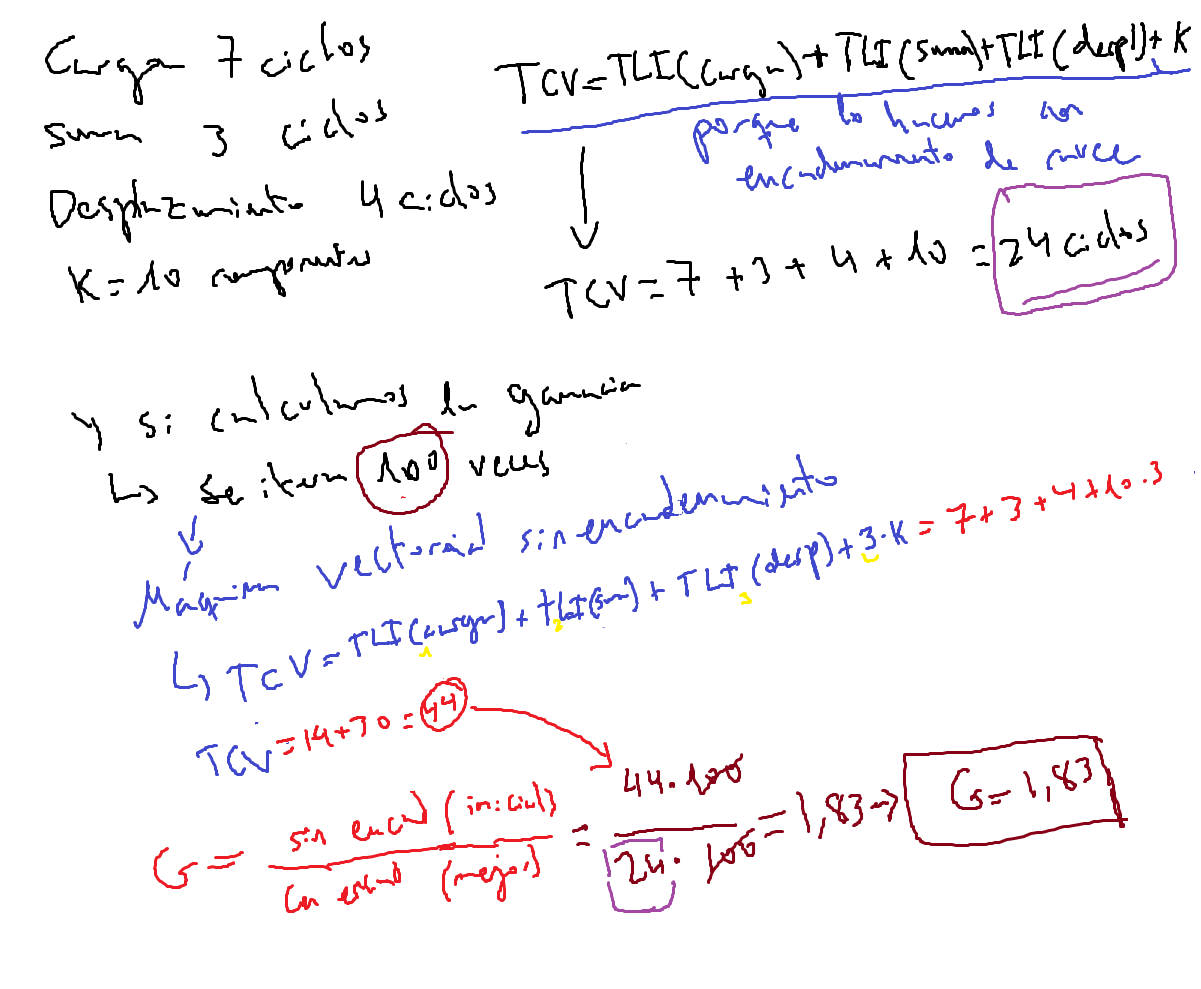 Carga 7 ciclos
suma 3 ciclos
Desplazamiento 4 ciclos
K=10 componentes
TCV=TLI(carga)+TLI(suma)+TLI(despl)+K
porque lo hacemos con
encadenamiento de cauce
TCV=7+3+4+10=24 ciclos
Y si calculamos la ganancia
↳ Se itera 100 veces
Máquina vectorial sin encadenamiento
↳ TCV=TLI(carga)+TLI(sum)+TLI(desp)+3·K=7+3+4+10.3
1 2 3
TCV=14+30=44
G= sin encad (inicial) = 44.100 =1,83→ G=1,83
Con encad (mejor) 24. 100